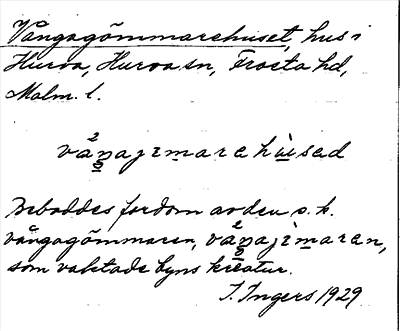 Vångagömmarehuset, hus i
Hurva, Hurva sn, Frosta hd,
Malm. l.
Beboddes fordom av den s. k.
vångagömmaren,
som vaktade byns kreatur.
I. Ingers 1929